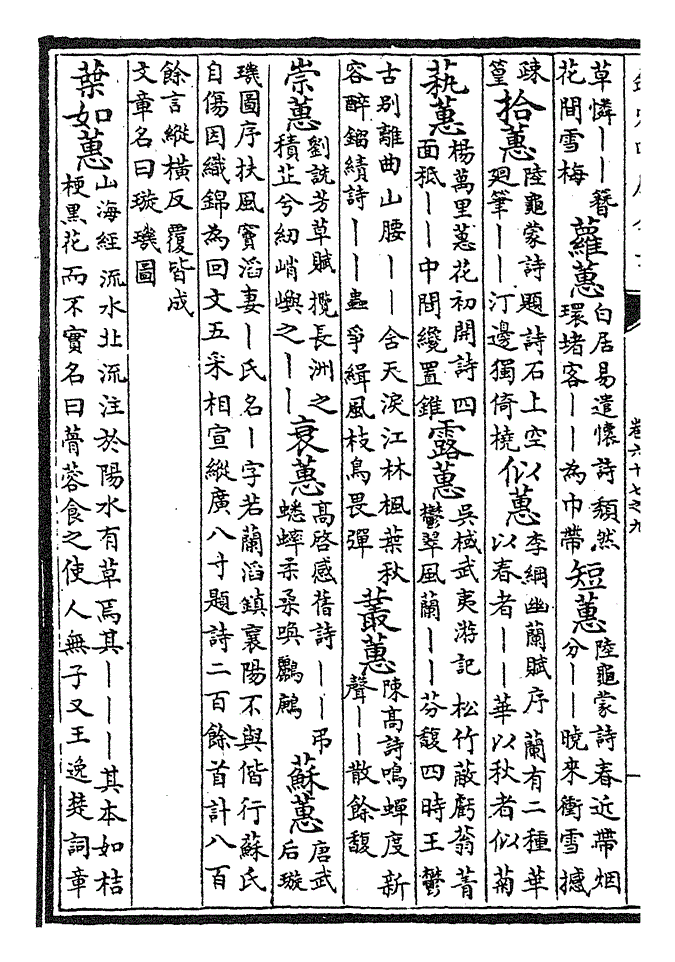 卷六十七之九
草憐——簪花間雪梅 蘿蕙 白居易遣懷詩頽然環堵客——為巾帶 短蕙 陸龜蒙詩春近帶烟分——曉來衝雪撼
疎篁 拾蕙 陸龜蒙詩題詩石上空廻筆——汀邊獨倚橈 似蕙 李綱幽蘭賦序蘭有二種華以春者——華以秋者似菊
蓺蕙 楊萬里蕙花初開詩四面秪——中間纔置錐 露蕙 吳棫武夷游記松竹蔽虧蓊菁鬱翠風蘭——芬馥四時王鬱
古别離曲山腰——含天淚江林楓葉秋容醉鎦績詩——蟲爭緝風枝鳥畏彈 叢蕙 陳高詩鳴蟬度新聲——散餘馥
崇蕙 劉詵芳草賦攬長洲之積芷兮紉峭嶼之—— 衰蕙 高啓感舊詩——弔蟋蟀柔桑喚鸝 蘇蕙 唐武后璇
璣圖序扶風竇滔妻—氏名—字若蘭滔鎮襄陽不與偕行蘇氏自傷因織錦為回文五采相宣縱廣八寸題詩二百餘首計八百
餘言縱橫反覆皆成文章名曰璇璣圖
葉如蕙 山海經流水北流注於陽水有草焉其———其本如桔梗黑花而不實名曰蓇蓉食之使人無子又王逸楚詞章